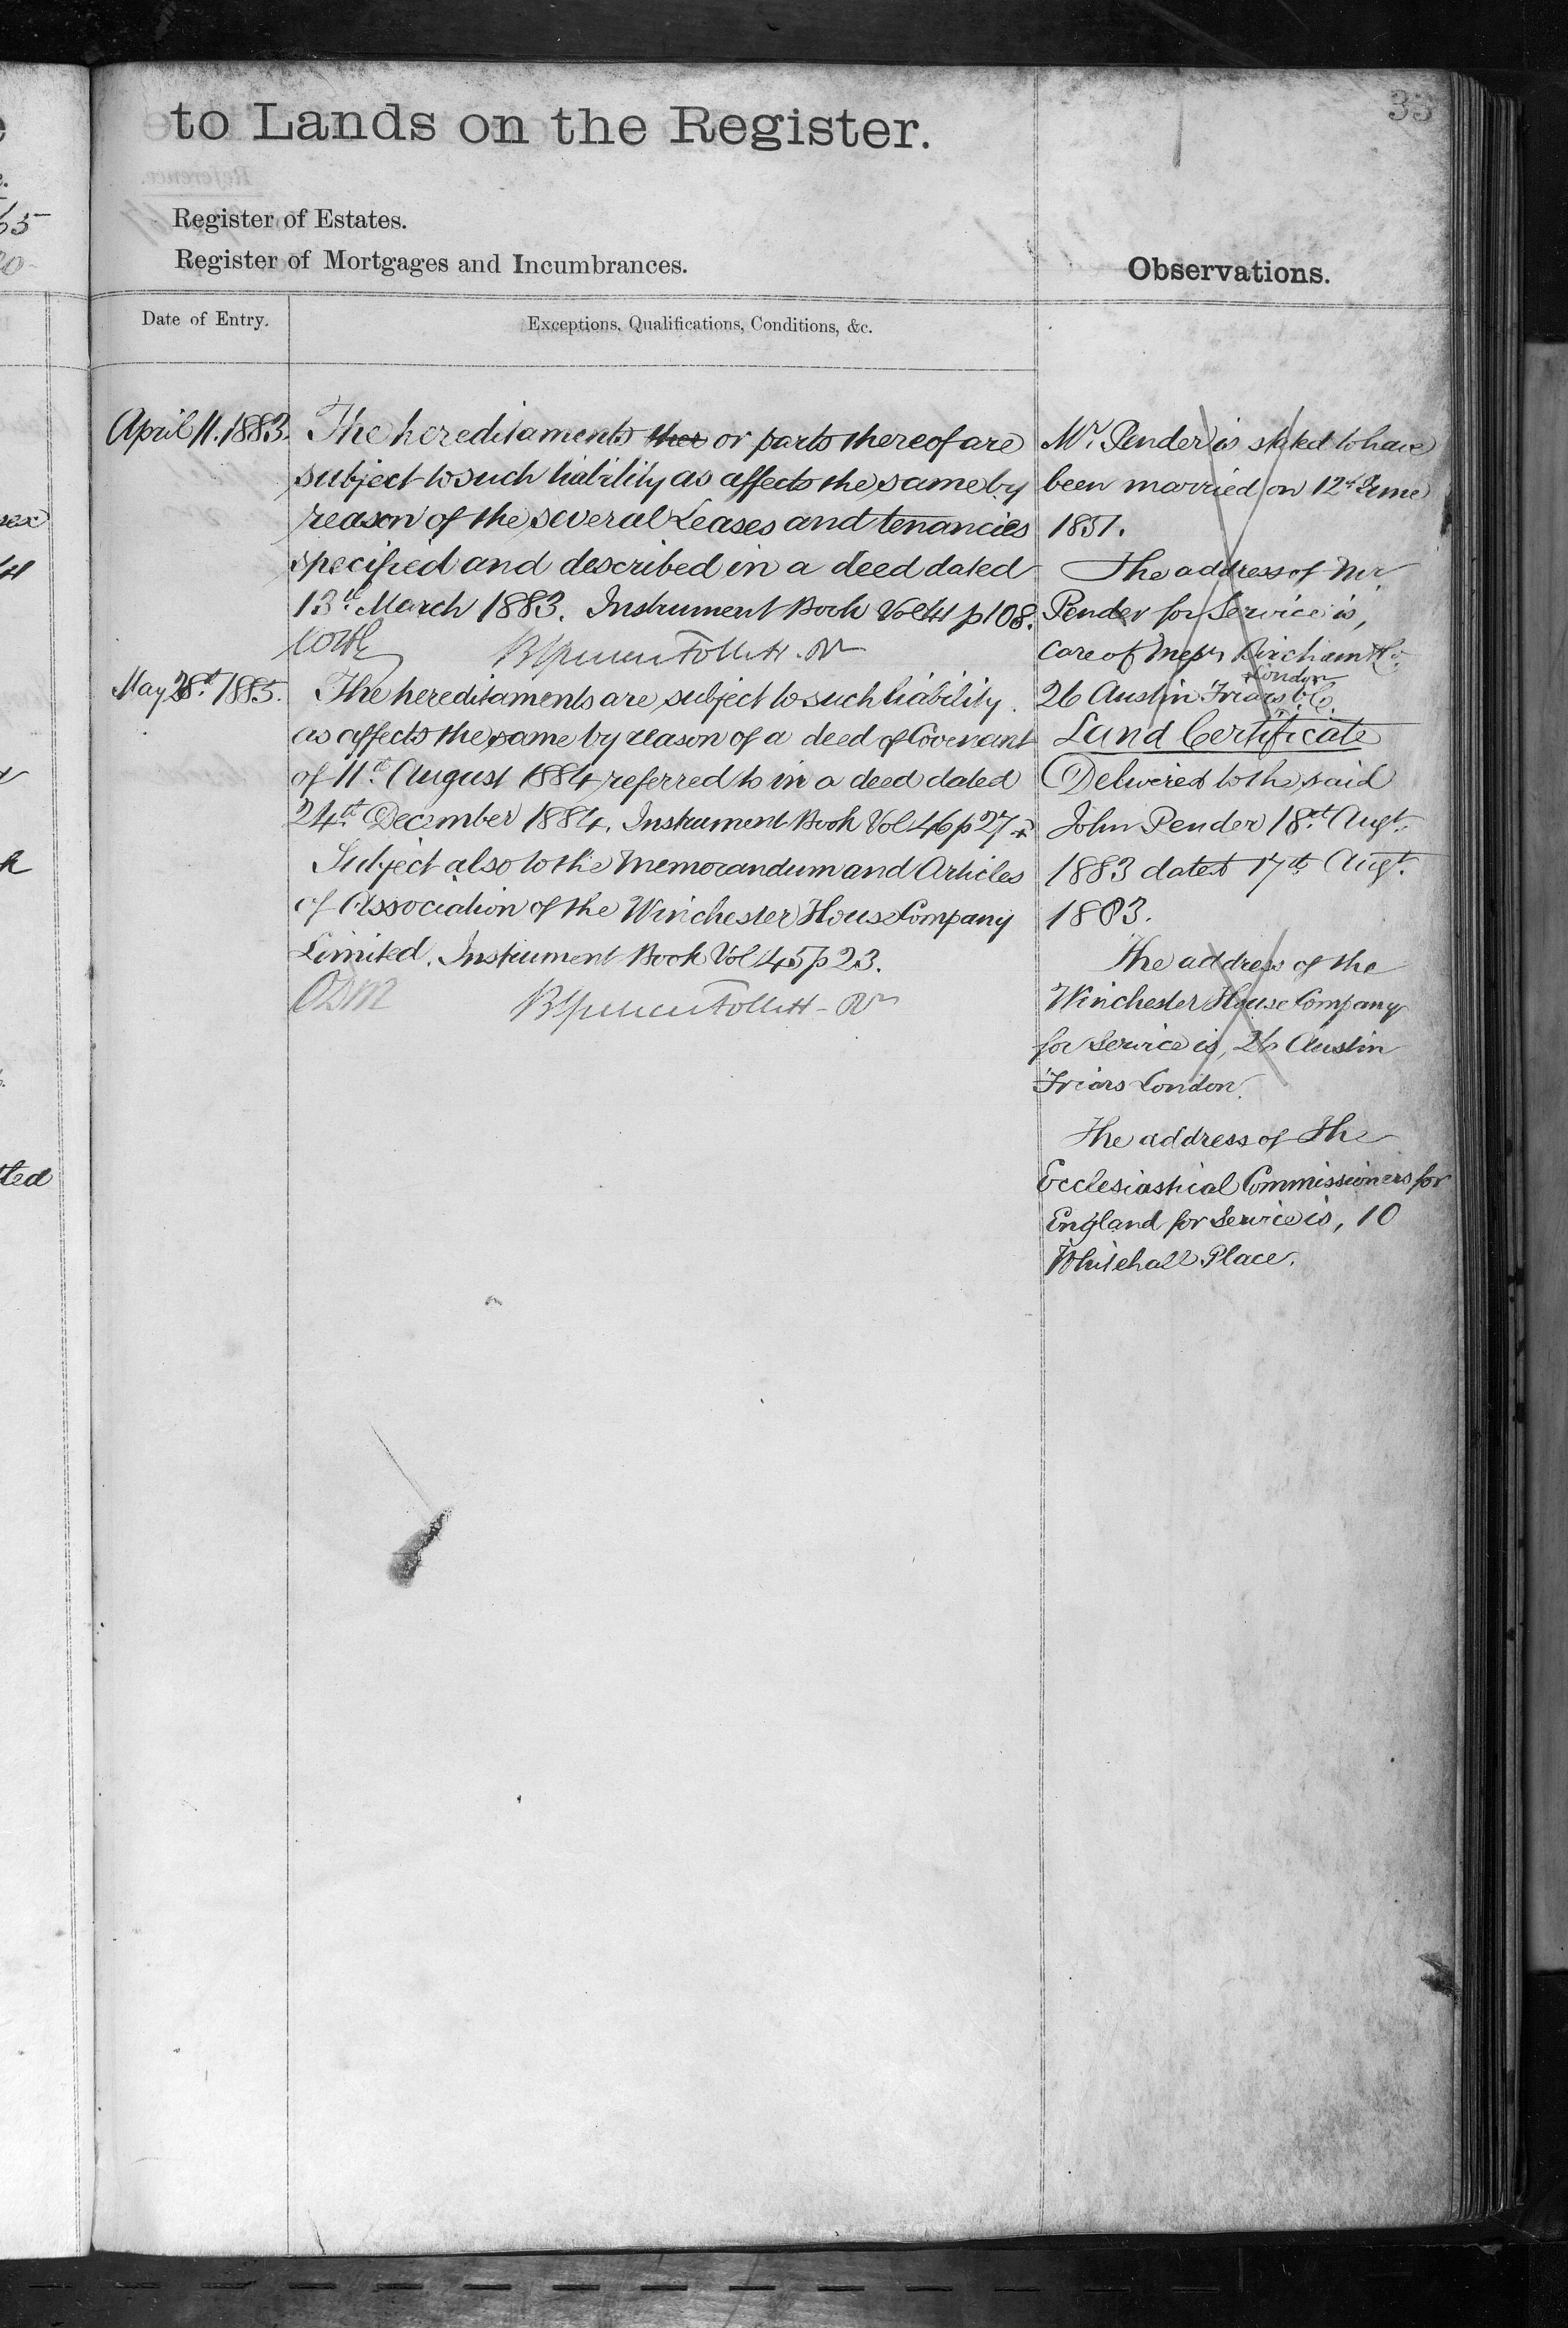 33
to Lands on the Register.
Register of Estates.
Register of Mortgages and Incumbrances.
Observations.
Date of Entry.
Exceptions, Qualifications, Conditions, &c.
April 11. 1883.
The hereditaments ther or parts thereof are
subject to such liability as affects the same by
reason of the several Leases and tenancies
specified and described in a deed dated
13th March 1883. Instrument Book Vol 41 p 108.
BSpencer Follett. Rr
May 28th 1885.
The hereditaments are subject to such liability
as affects the same by reason of a deed of Covenant
of 11th August 1884 referred to in a deed dated
24th December 1884. Instrument Book Vol 46 p 27
Subject also to the Memorandum and Articles
of Association of the Winchester House Company
Limited. Instrument Book Vol 45 p 23.
BSpencer Follett - Rr
Mr. Pender is stated to have
been married on 12th June
1851.
The address of Mr
Pender for Service is,
Care of Messrs Bircham & Co.
London
26 Austin Friars E.C.
Land Certificate
Delivered to the said
John Pender 18th Augt.
1883 dated 17th Augt.
1883.
The address of the
Winchester House Company
for Service is, 26 Austin
Friars London.
The address of the
Ecclesiastical Commissioners for
England for Service is, 10
Whitehall Place.